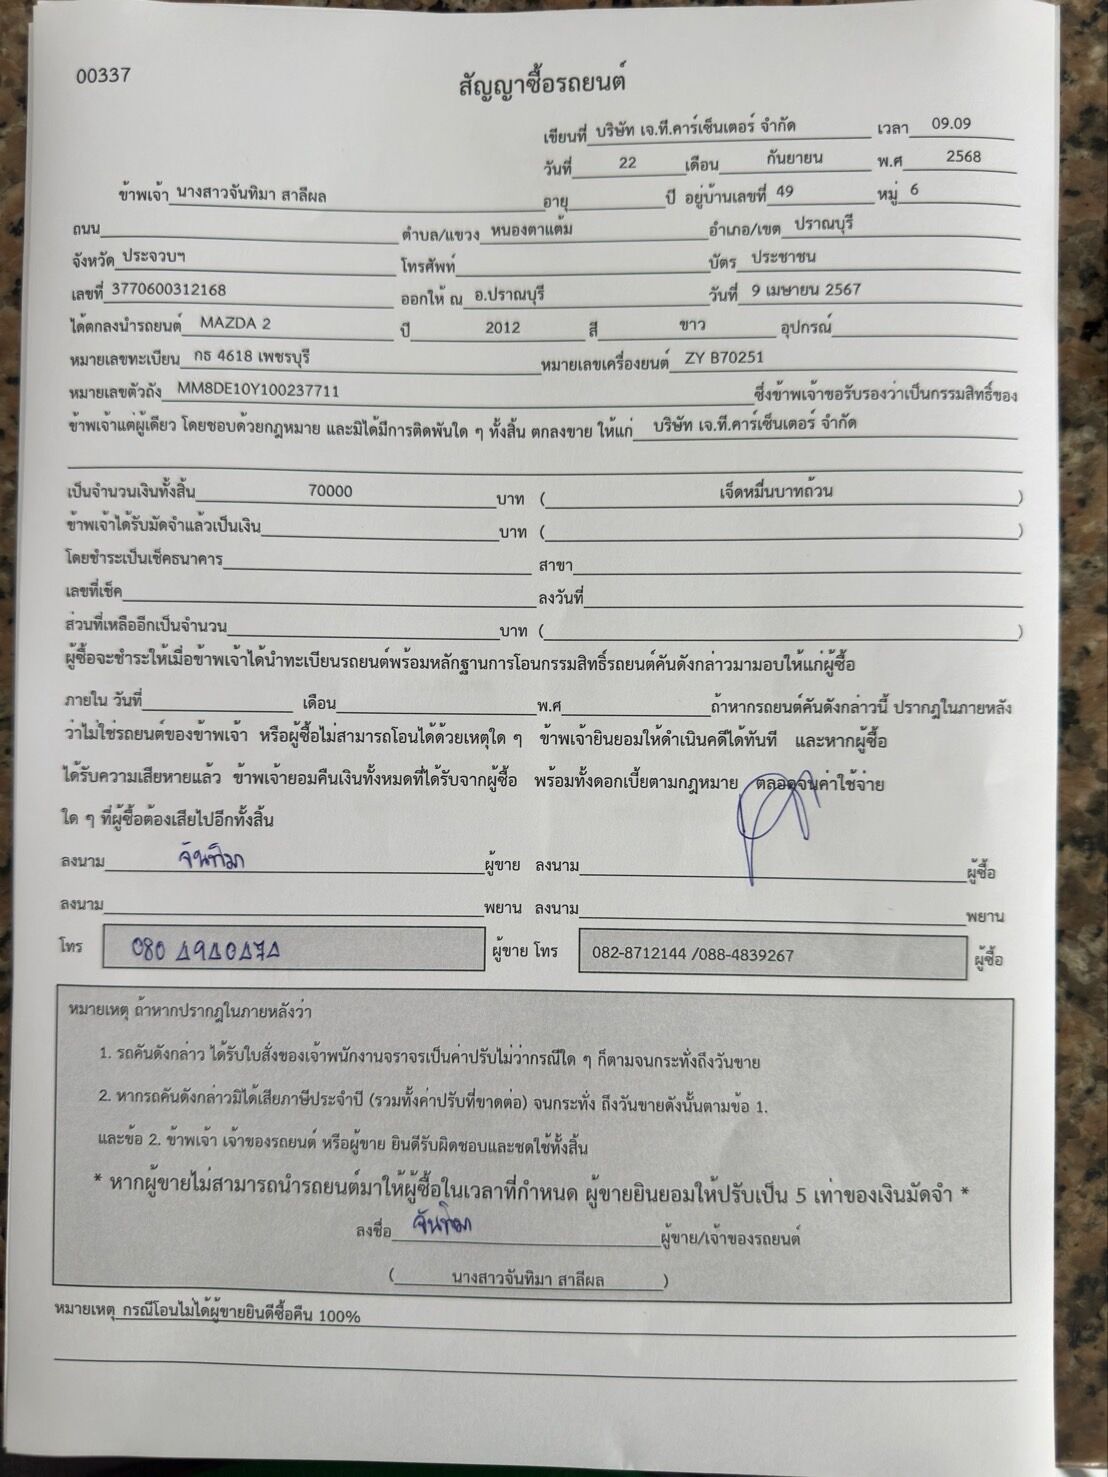 00337
สัญญาซื้อรถยนต์
เขียนที่ บริษัท เจ.ที.คาร์เซ็นเตอร์ จำกัด เวลา 09.09
วันที่ 22 เดือน กันยายน พ.ศ 2568
ข้าพเจ้า นางสาวจันทิมา สาลีผล อายุ ปี อยู่บ้านเลขที่ 49 หมู่ 6
ถนน ตำบล/แขวง หนองตาแต้ม อำเภอ/เขต ปราณบุรี
จังหวัด ประจวบฯ โทรศัพท์ บัตร ประชาชน
เลขที่ 3770600312168 ออกให้ ณ อ.ปราณบุรี วันที่ 9 เมษายน 2567
ได้ตกลงนำรถยนต์ MAZDA 2 ปี 2012 สี ขาว อุปกรณ์
หมายเลขทะเบียน กธ 4618 เพชรบุรี หมายเลขเครื่องยนต์ ZY B70251
หมายเลขตัวถัง MM8DE10Y100237711 ซึ่งข้าพเจ้าขอรับรองว่าเป็นกรรมสิทธิ์ของ
ข้าพเจ้าแต่ผู้เดียว โดยชอบด้วยกฎหมาย และมิได้มีการติดพันใด ๆ ทั้งสิ้น ตกลงขาย ให้แก่ บริษัท เจ.ที.คาร์เซ็นเตอร์ จำกัด
เป็นจำนวนเงินทั้งสิ้น 70000 บาท ( เจ็ดหมื่นบาทถ้วน )
ข้าพเจ้าได้รับมัดจำแล้วเป็นเงิน บาท ( )
โดยชำระเป็นเช็คธนาคาร สาขา
เลขที่เช็ค ลงวันที่
ส่วนที่เหลืออีกเป็นจำนวน บาท ( )
ผู้ซื้อจะชำระให้เมื่อข้าพเจ้าได้นำทะเบียนรถยนต์พร้อมหลักฐานการโอนกรรมสิทธิ์รถยนต์คันดังกล่าวมามอบให้แก่ผู้ซื้อ
ภายใน วันที่ เดือน พ.ศ ถ้าหากรถยนต์คันดังกล่าวนี้ ปรากฎในภายหลัง
ว่าไม่ใช่รถยนต์ของข้าพเจ้า หรือผู้ซื้อไม่สามารถโอนได้ด้วยเหตุใด ๆ ข้าพเจ้ายินยอมให้ดำเนินคดีได้ทันที และหากผู้ซื้อ
ได้รับความเสียหายแล้ว ข้าพเจ้ายอมคืนเงินทั้งหมดที่ได้รับจากผู้ซื้อ พร้อมทั้งดอกเบี้ยตามกฎหมาย ตลอดจนค่าใช้จ่าย
ใด ๆ ที่ผู้ซื้อต้องเสียไปอีกทั้งสิ้น
ลงนาม จันทิมา ผู้ขาย ลงนาม ผู้ซื้อ
ลงนาม พยาน ลงนาม พยาน
โทร 080 ผู้ขาย โทร 082-8712144 /088-4839267 ผู้ซื้อ
หมายเหตุ ถ้าหากปรากฎในภายหลังว่า
1. รถคันดังกล่าว ได้รับใบสั่งของเจ้าพนักงานจราจรเป็นค่าปรับไม่ว่ากรณีใด ๆ ก็ตามจนกระทั่งถึงวันขาย
2. หากรถคันดังกล่าวมิได้เสียภาษีประจำปี (รวมทั้งค่าปรับที่ขาดต่อ) จนกระทั่ง ถึงวันขายดังนั้นตามข้อ 1.
และข้อ 2. ข้าพเจ้า เจ้าของรถยนต์ หรือผู้ขาย ยินดีรับผิดชอบและชดใช้ทั้งสิ้น
* หากผู้ขายไม่สามารถนำรถยนต์มาให้ผู้ซื้อในเวลาที่กำหนด ผู้ขายยินยอมให้ปรับเป็น 5 เท่าของเงินมัดจำ *
ลงชื่อ จันทิมา ผู้ขาย/เจ้าของรถยนต์
( นางสาวจันทิมา สาลีผล )
หมายเหตุ กรณีโอนไม่ได้ผู้ขายยินดีซื้อคืน 100%